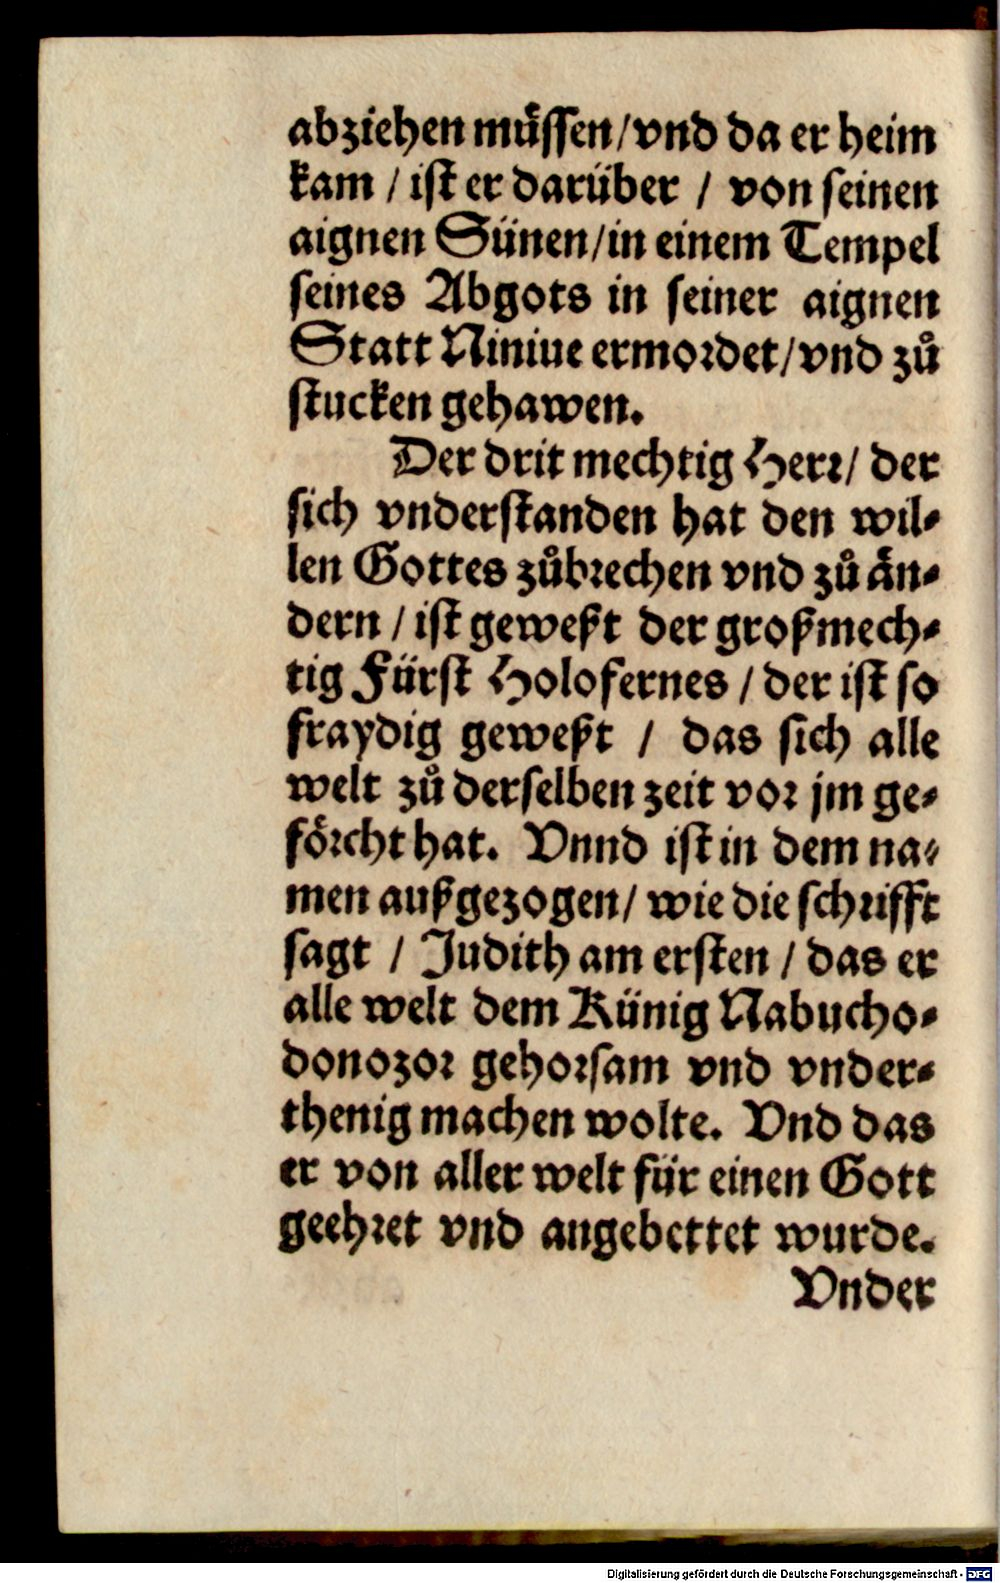 abziehen müssen/vnd da er heim
kam / ist er darüber / von seinen
aignen Sünen/in einem Tempel
seines Abgots in seiner aignen
Statt Niniue ermordet/vnd zů
stucken gehawen.
Der drit mechtig Herr/ der
sich vnderstanden hat den wil-
len Gottes zůbrechen vnd zů än-
dern / ist geweßt der großmech-
tig Fürst Holofernes / der ist so
fraydig geweßt / das sich alle
welt zů derselben zeit vor jm ge-
förcht hat. Vnnd ist in dem na-
men außgezogen/ wie die schrifft
sagt / Judith am ersten / das er
alle welt dem Künig Nabucho-
donozor gehorsam vnd vnder-
thenig machen wolte. Vnd das
er von aller welt für einen Gott
geehret vnd angebettet wurde.
Vnder
Digitalisierung gefördert durch die Deutsche Forschungsgemeinschaft - DFG